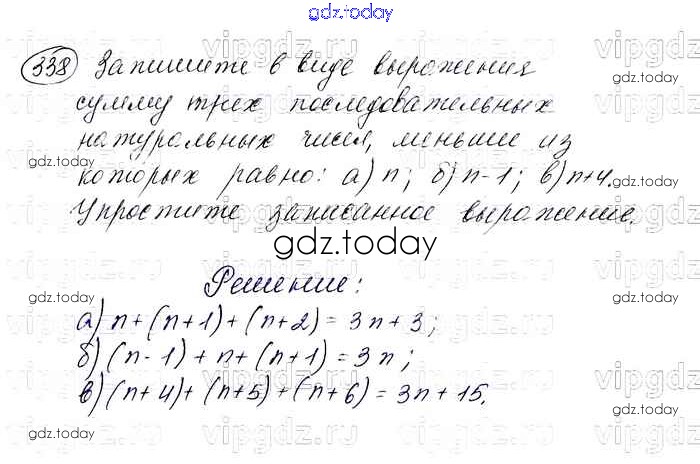 gdz.today
338 Запишите в виде выражения
сумму трех последовательных
натуральных чисел, меньшее из
которых равно: а) n; б) n-1; в) n+4.
Упростите записанное выражение.
gdz.today
Решение:
а) n+(n+1)+(n+2)=3n+3;
б) (n-1)+n+(n+1)=3n;
в) (n+4)+(n+5)+(n+6)=3n+15.